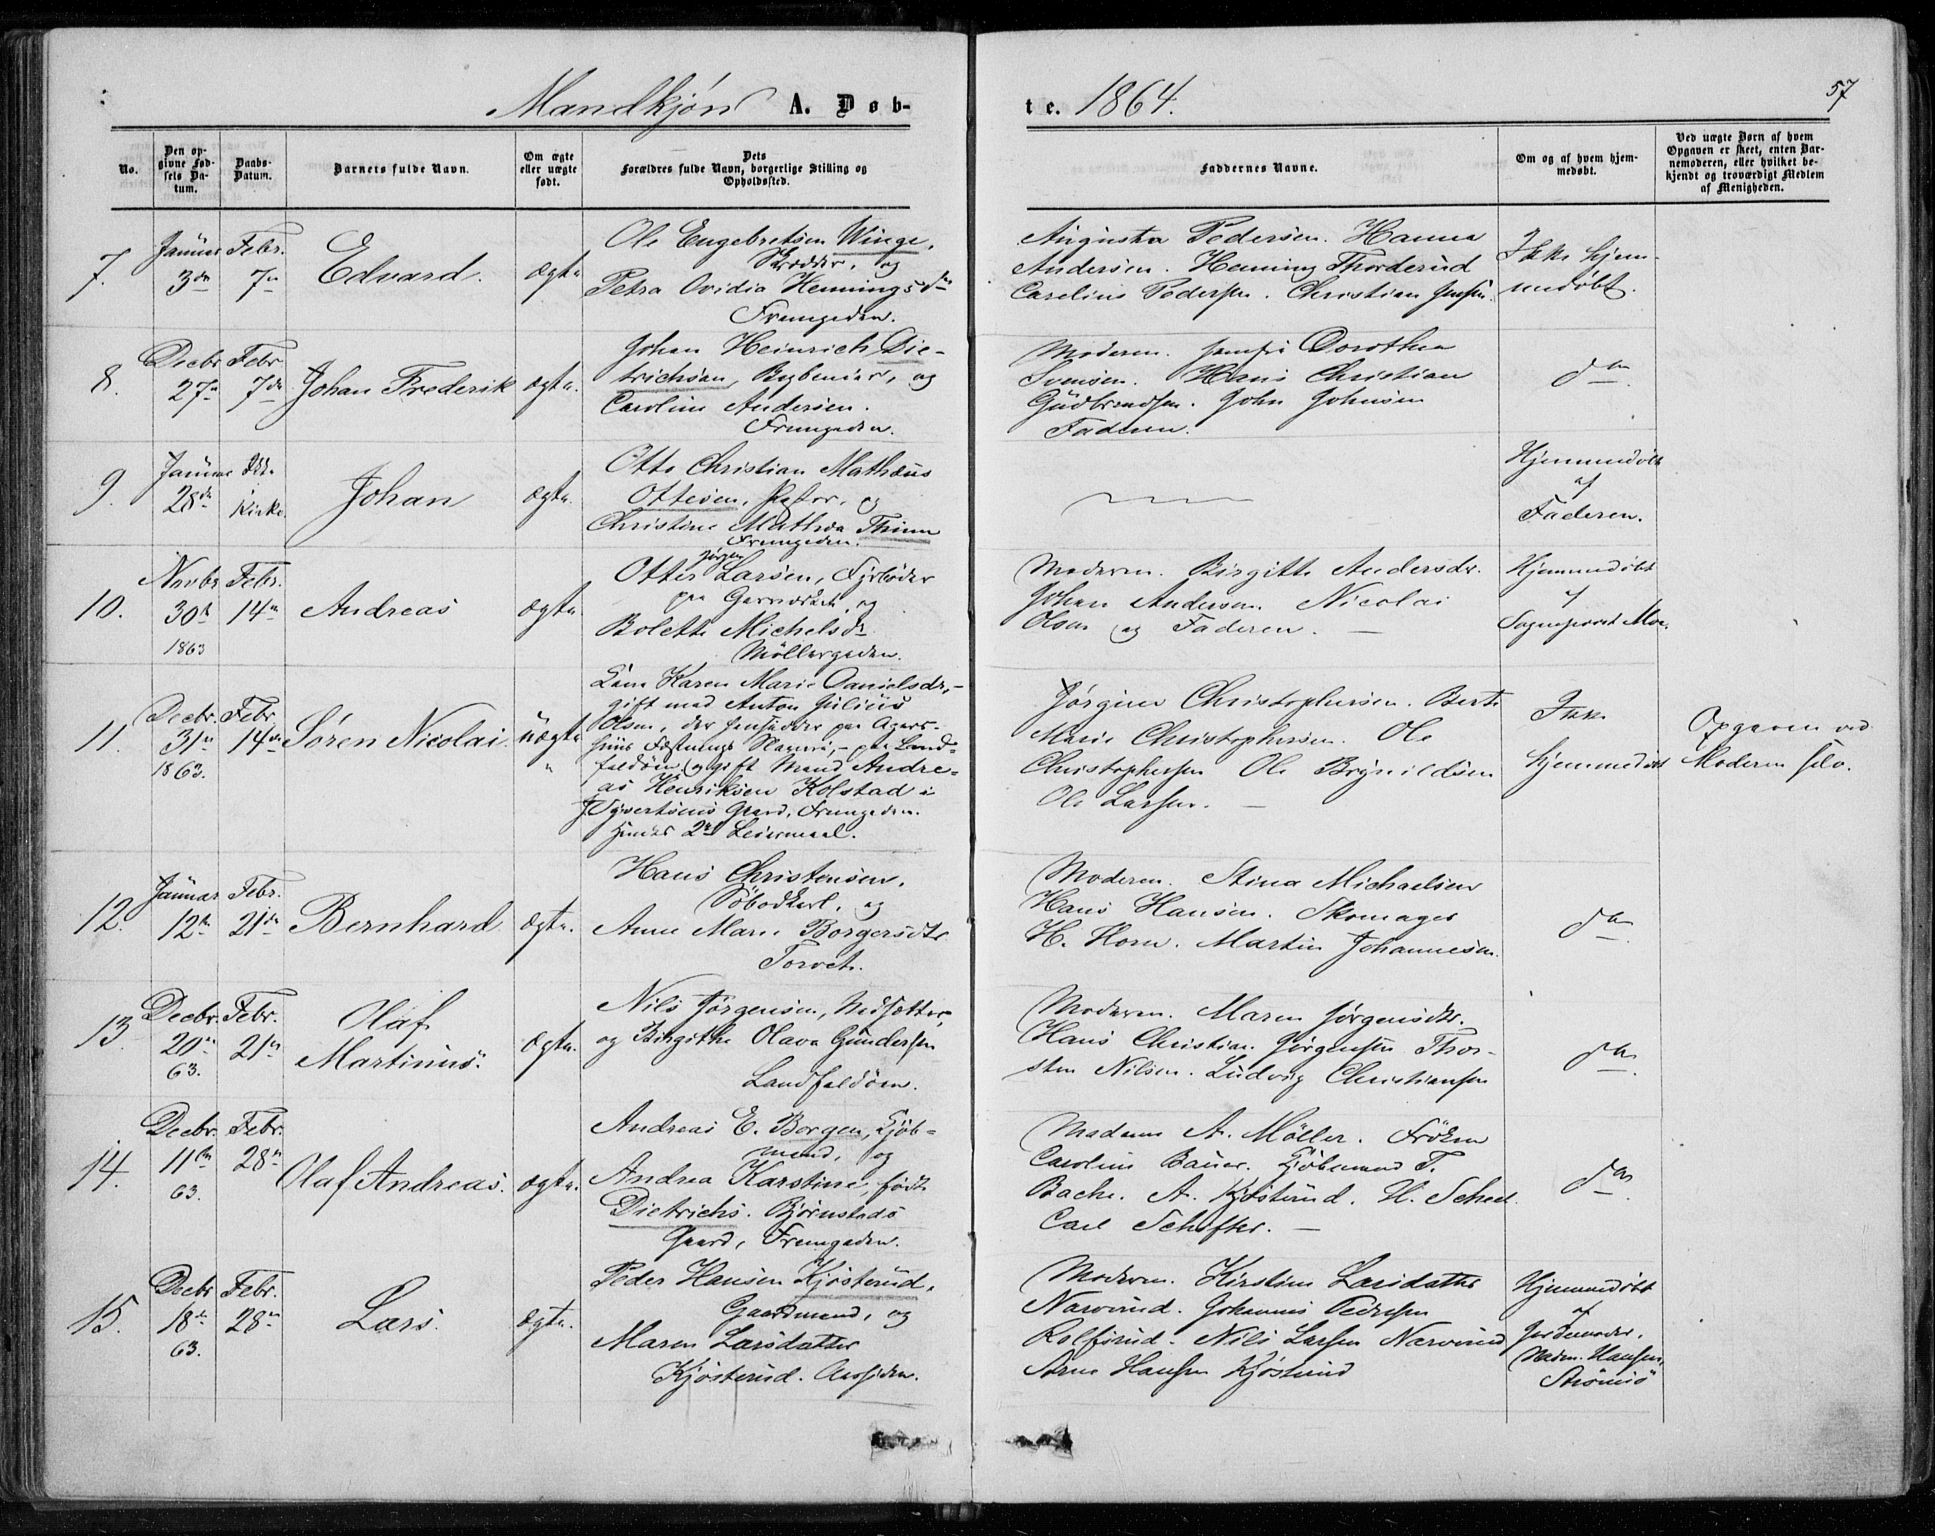 Mandkjøn A. Døb-
te. 1864.
57
No.
Den op-
givne Fød-
sels Da-
tum.
Daabs-
Datum.
Barnets fulde Navn.
Om ægte
eller uægte
født.
Dets
Forældres fulde Navn, borgerlige Stilling og
Opholdssted.
Faddernes Navne.
Om og af hvem hjem-
medøbt.
Ved uægte Børn af hvem
Opgaven er skeet, enten Bar-
nemoderen, eller hvilket be-
kjendt og troværdigt Medlem
af Menigheden.
7.
Januar
3die
Febr.
7de
Edvard.
ægte
Ole Engebretsen Winge,
Skrædder, og
Petra Ovidia Henningsdtr
Fremgaden.
Augusta Pedersen. Hanna
Andersen. Henning Thorderud
Carelius Pedersen. Christian Jensen.
Ikke hjem-
medøbt.
8.
Decbr
27de
Febr.
7de
Johan Frederik
ægte.
Johan Heinrich Die-
trichsen, Bygbenier, og
Caroline Andersen.
Fremgaden.
Moderen. Jomfru Dorothea
Svensen. Hans Christian
Gudbrandsen. John Johnsen
Faderen.
do
9.
Januar
28de
Ikke
i Kirke.
Johan
ægte.
Otto Christian Mathæus
Ottesen, Pastor, og
Christine Mathea Thinn
Fremgaden.
Hjemmedøbt
af
Faderen.
10.
Novbr
30te
1863
Febr.
14de
Andreas
ægte.
Jørgen
Otter Larsen, Fyrbøder
paa Gasværket, og
Bolette Michelsdr
Møllergaden.
Moderen. Birgitte Andersdr.
Johan Andersen. Nicolai
Olsen og Faderen. —
Hjemmedøbt
af
Sognepræst Moe.
11.
Decbr.
31te
1863.
Febr.
14de
Søren Nicolai.
uægte
Karen Marie Danielsdr,
gift med Anton Julius
Olsen, der hensidder paa Agers-
huus Fæstnings Slaveri, — paa Land-
faldøen og gift Mand Andre-
as Henriksen Kolstad i
Syvertsens Gaard, Fremgaden.
Hendes 2det Leiermaal.
Jørgine Christophersen. Berte
Marie Christophersen. Ole
Christophersen Ole Brynildsen
Ole Larsen. —
Ikke
hjemmedøbt
Opgaven ved
Moderen selv.
12.
Januar
12te
Febr.
21de
Bernhard
ægte.
Hans Christensen,
og
Anne Marie Borgersdtr
Torvet.
Moderen. Stina Michaelsen
Hans Hansen. Skomager
H. Horn. Martin Johannesen.
do
13
Decbr.
20de
63.
Febr.
21de
Olaf
Martinius.
ægte.
Nils Jørgensen, Nedsætter,
og Birgithe Olava Gundersen
Landfaldøen.
Moderen. Maren Jørgensdtr.
Hans Christian Jørgensen Thor-
sten Nilsen. Ludvig Christiansen
do
14.
Decbr.
11te
63.
Febr.
28de
Olaf Andreas.
ægte.
Andreas E. Borgen, Kjøb-
mand, og
Andrea Karstine, født
Dietrichs. Bjørnstads
Gaard, Fremgaden.
Madame A. Møller. Frøken
Caroline Bauer. Kjøbmand T.
Bache. A. Kjøsterud. H. Scheel
Carl Schefter. —
do
15.
Decbr
18de
63.
Febr.
28de
Lars.
ægte.
Peder Hansen Kjøsterud,
Gaardmand, og
Maren Larsdatter
Kjøsterud. Aassiden.
Moderen. Kirstine Larsdatter
Narverud. Johannes Pedersen
Rolfsrud. Nils Larsen Narverud
Arne Hansen Kjøsterud
Hjemmedøbt
af
Jordemoder,
Madm. Hansen,
Strømsø